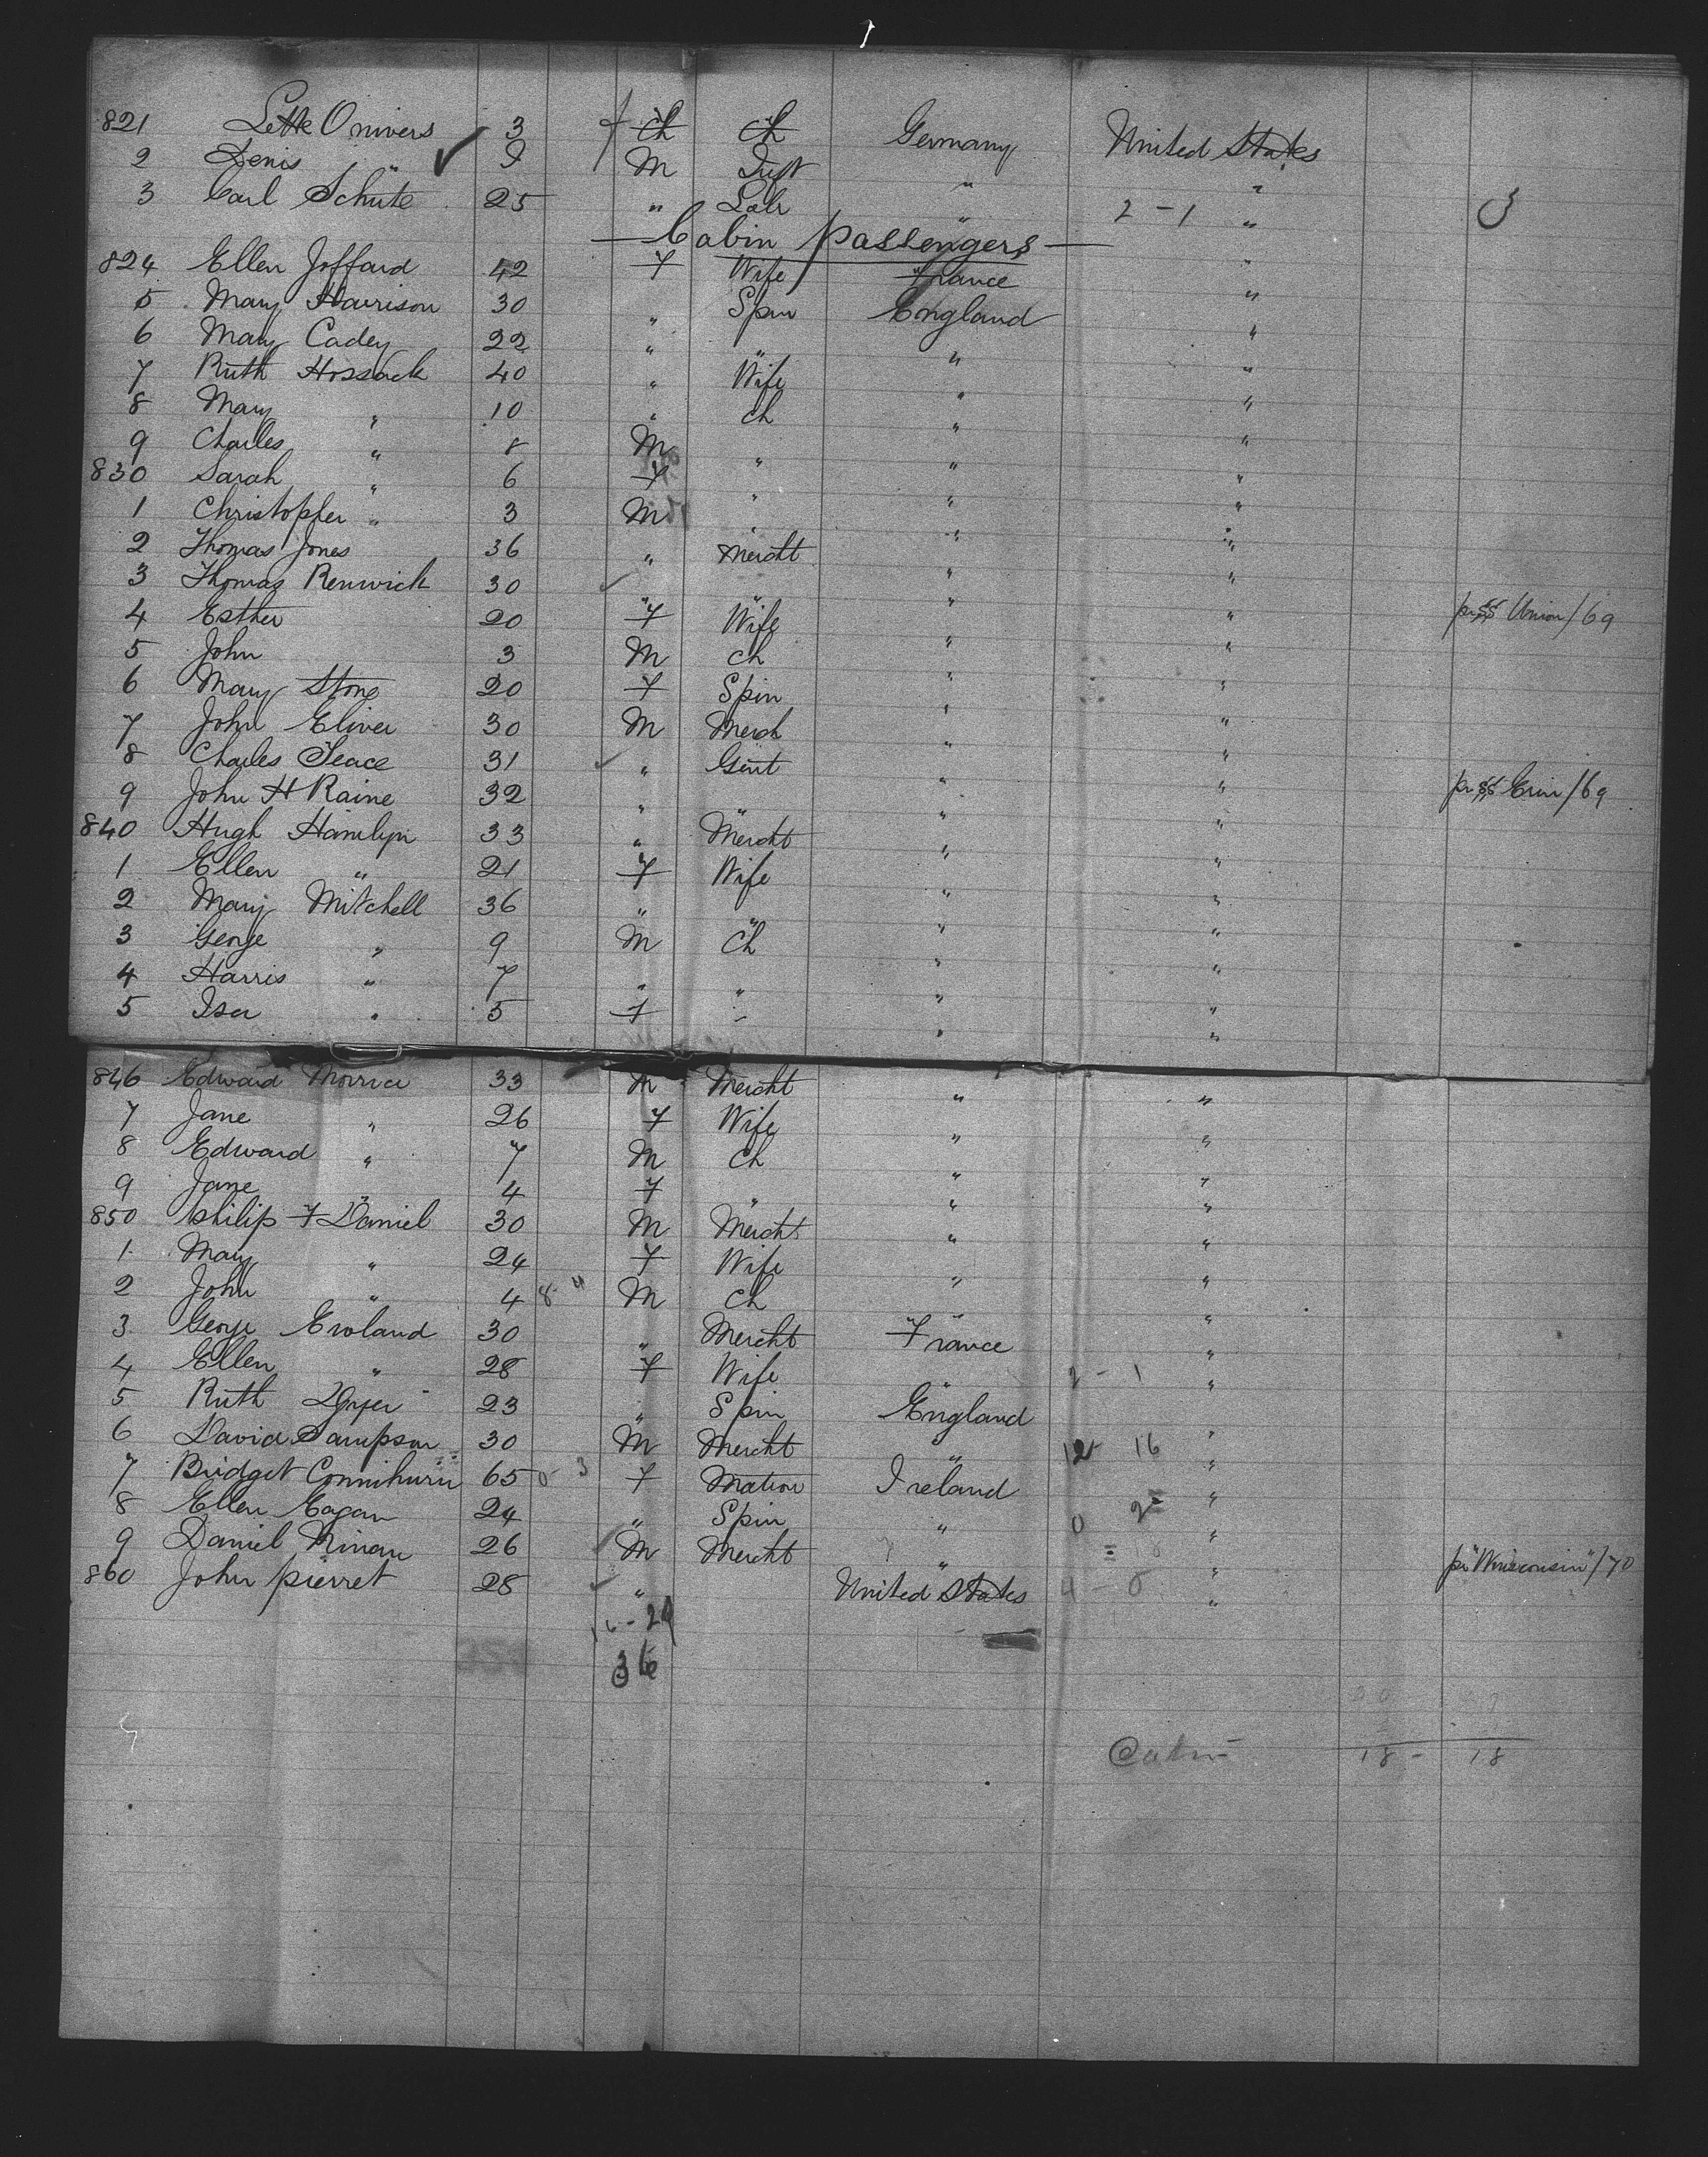 821 Lette Onivers 3 f Ch Ch Germany United States
2 Denis " ✓ M Inft " "
3 Carl Schute 25 " Labr " 2 - 1 " 3
— Cabin Passengers —
824 Ellen Joffard 42 F Wife France "
5 Mary Harrison 30 " Spin England "
6 Mary Cadey 22 " " " "
7 Ruth Hossack 40 " Wife " "
8 Mary " 10 " Ch " "
9 Charles " 8 M " " "
830 Sarah " 6 F " " "
1 Christopher " 3 M " " "
2 Thomas Jones 36 " Mercht " "
3 Thomas Renwick 30 ✓ " " " " pr SS Union/69
4 Esther 20 F Wife " "
5 John 3 M Ch " "
6 Mary Stone 20 F Spin " "
7 John Eliver 30 M Merch " "
8 Charles 31 ✓ " Gent " " pr SS Erin/69
9 John H Raine 32 " " " "
840 Hugh Hamlyn 33 " Mercht " "
1 Ellen " 21 F Wife " "
2 Mary Mitchell 36 " " " "
3 George " 9 M Ch " "
4 Harris " 7 " " " "
5 Isa " 5 F " " "
846 Edward Morrice 33 M Mercht " "
7 Jane " 26 F Wife " "
8 Edward " 7 M Ch " "
9 Jane " 4 F " " "
850 Philip F Daniel 30 M Mercht " "
1 Mary " 24 F Wife " "
2 John " 4 8 4 M Ch " "
3 George Eroland 30 " Mercht France "
4 Ellen " 28 F Wife " 2 - 1 "
5 Ruth Dyer 23 " Spin England "
6 David Sampson 30 M Mercht " 12 16 "
7 Bridget Connihurn 65 0 3 F Matron Ireland "
8 Ellen Eagan 24 " Spin " 0 2 "
9 Daniel Ninan 26 ✓ M Mercht " " pr "Wisconsin"/70
860 John Pierret 28 ✓ " United States 4 - 0 "
16 - 21
36
Cabin 18 - 18